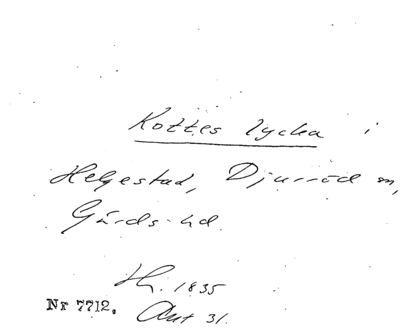 Kottes lycka i
Helgestad, Djurröd sn,
Gärds hd.
H. 1835
Nr 7712. Akt 31.